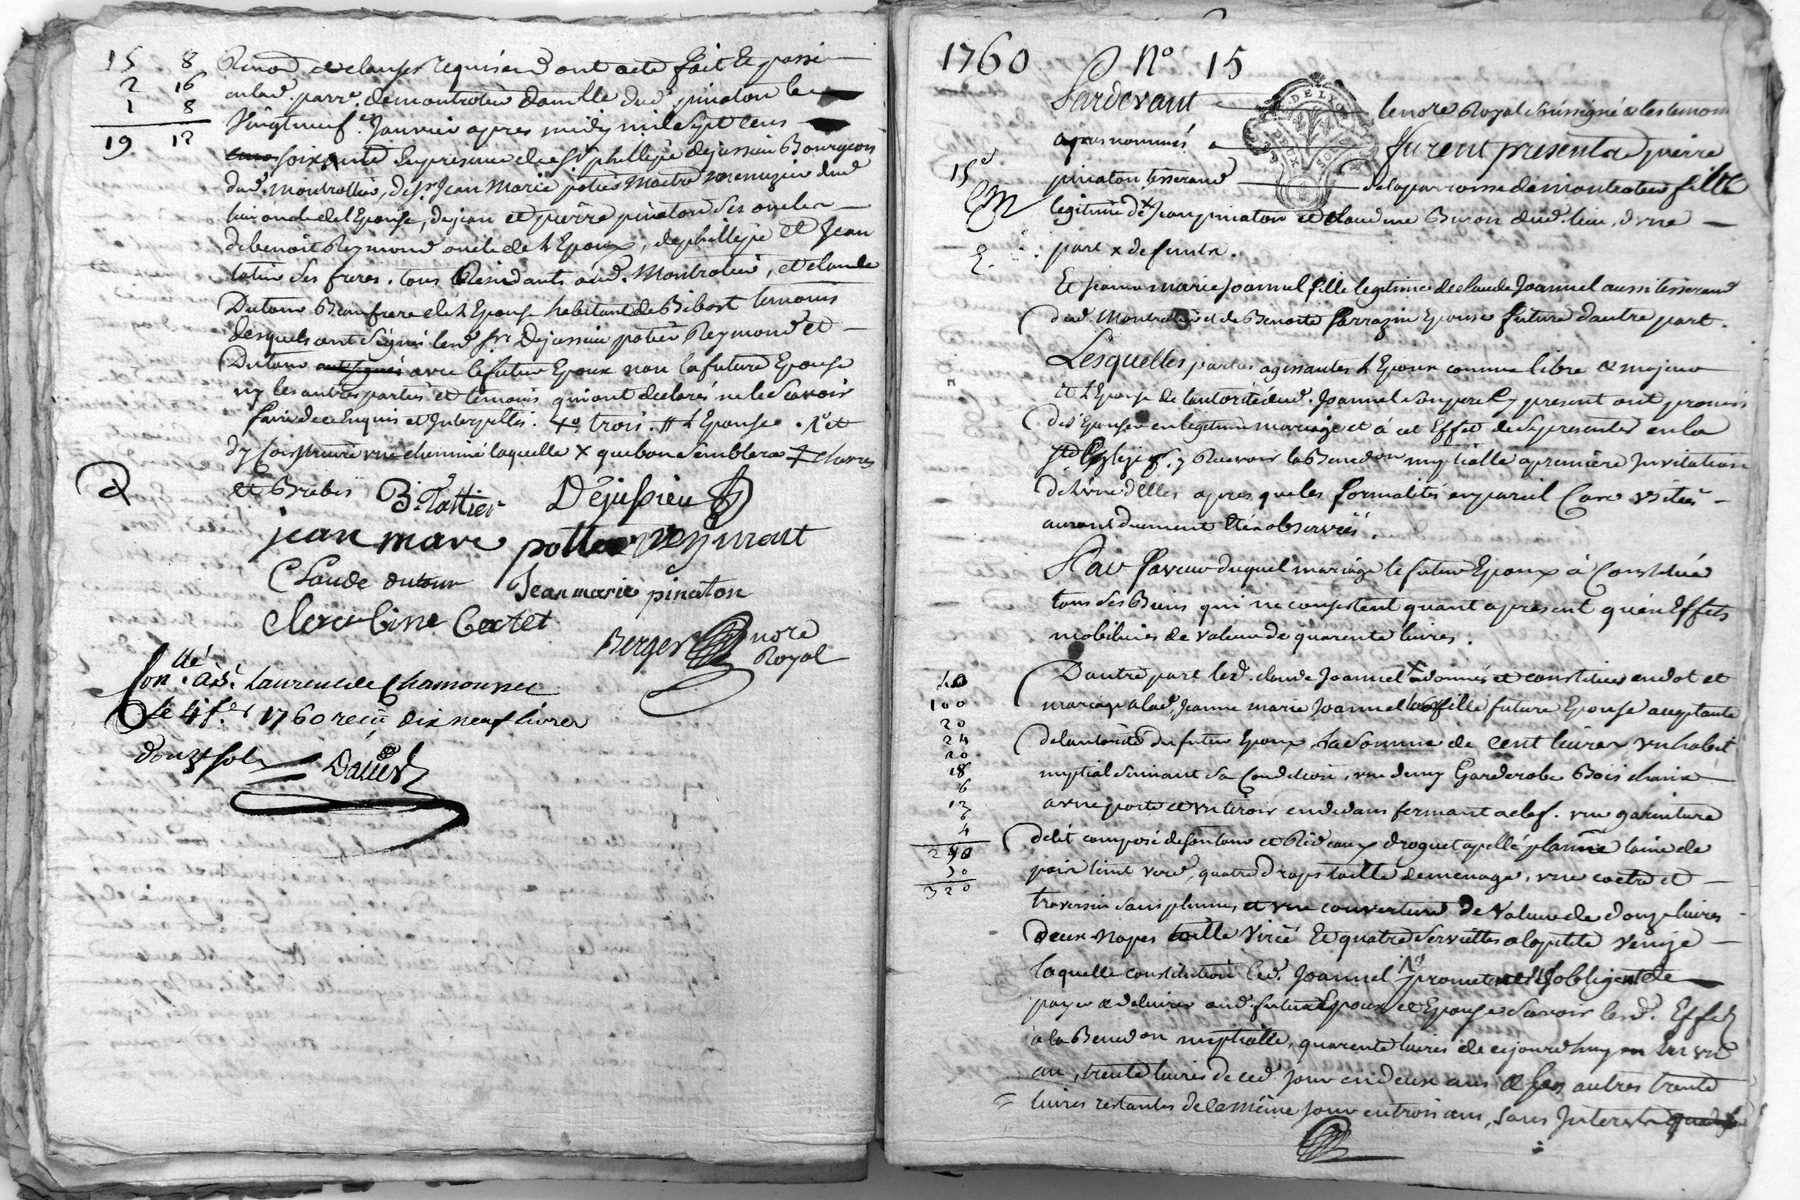 15 8
2 16
1 8
19 12
Renon et clauses requises dont acte fait et passé
aud. parr. de montrotier domille dud. pinaton le
Vingtneuf. Janvier apres midy mil sept cens
soixante En presence de sr phillippe dejussieu Bourgeois
dud. Montrottier, de sr Jean Marie potier Maitre menuizier dud.
lieu oncle de l'Epouse, de jean et pierre pinaton ses oncles
de benoit Reymond oncle de l'Epoux, de phillippe et Jean
ses freres. tous Residants aud. Montrotier, et claude
Dutour Beaufrere de l'Epouse habitant de Bibost temoins
desquels ont signé lesd. srs Dejussieu potier Reymond et
Dutour avec le futur Epoux non la future Epouse
ny les autres parties et temoins qui ont declarés ne le sçavoir
faire de ce Enquis et Interpellés. trois. # l'Epouse. et
une cheminé laquelle x que bon semblera
et Brebis
B. Rattier Déjussieu
jean marie pottier Reymont
Claude dutour Jean marie pinaton
Berger nore
Royal
Con.llé à St. Laurent de Chamousset
Le 4 f.er 1760 reçu dix neuf livres
douze sols
1760 No 15
Pardevant le nore Royal soussigné et les temoins
DE LYON
DEUX SOLS
apres nommés furent presents pierre
15e
pinaton tisserand de la parroisse de montrotier fils
legitime de Jean pinaton et claudine Buron dud. lieu, d'une
part x defunts.
Et Jeanne marie Joannel fille legitime de claude Joannel aussi tisserand
dud. Montrotier et de Benoite Sarrazin Epouse future d'autre part.
Lesquelles parties agissantes l'Epoux comme libre et majeur
et l'Epouse de l'autorité dud. Joannel son pere y present ont promis
de s'Epouser en legitime mariage et à cet Effet de se presenter en la
Ste Eglise pr. y Recevoir la Benedon nuptialle a premiere Invitation
de l'une d'Elles apres que les formalités en pareil Cas usitées
auront duement Eté observéés.
En faveur duquel mariage le futur Epoux à Constitué
tous ses Biens qui ne consistent quant a present qu'en Effets
mobiliaires de valeur de quarente livres.
40
100
20
24
20
18
6
12
6
4
320
D'autre part led. claude Joannel x a donné et constitué en dot et
mariage a lad. Jeanne marie Joannel sa fille future Epouse acceptante
de l'autorité du futur Epoux La somme de cent livres un habit
nuptial suivant sa Condition, une demy Garderobe Bois chaine
a une porte et un tiroir en dedans fermant a clef. une garniture
de lit composé de son tour et Rideaux droguet apellé plaine laine de
païs teint verd, quatre draps toille de menage, une coetre et
traversin sans plume, et une couverture de valeur de douze livres
deux Napes toille Virée Et quatre serviettes a la petite Venize
laquelle constitution led. Joannel promet et s'oblige de
payer et delivrer aud. futurs Epoux et Epouse sçavoir lesd. Effets
à la Benedon nuptialle, quarente livres de cejourd'huy en un
an, trente livres de ced. jour en deux ans et les autres trente
livres restantes de le même jour en trois ans, sans Interets